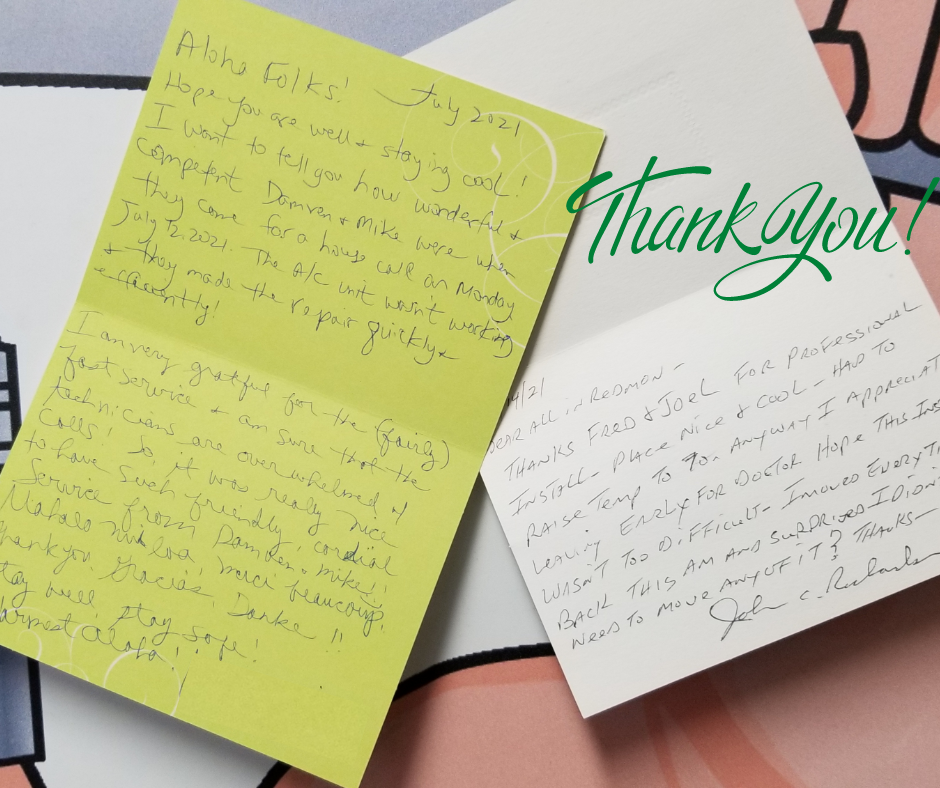 Aloha Folks!
July 2021
Hope you are well & staying cool!
I want to tell you how wonderful &
competent Damien & Mike were when
they came for a house call on Monday
July 12, 2021. The A/C unit wasn't working
& they made the repair quickly &
efficiently!
I am very grateful for the (fairly)
fast service & am sure that the
technicians are overwhelmed w/
calls! So, it was really nice
to have such friendly, cordial
service from Damien & Mike!
Mahalo nui loa, merci beaucoup,
thank you, Gracias, Danke !!
tay well, stay safe!
armest aloha!
Thank You!
4/21
DEAR ALL IN REDMON -
THANKS FRED & JOEL FOR PROFESSIONAL
INSTALL - PLACE NICE & COOL - HAD TO
RAISE TEMP TO 70. ANYWAY I APPRECIAT
LEAVING EARLY FOR DOCTOR HOPE THIS INS
WASN'T TOO DIFFICULT - I MOVED EVERYTH
BACK THIS AM AND SURPRISED I DIDN'
NEED TO MOVE ANY OF IT? THANKS -
John C. Richards